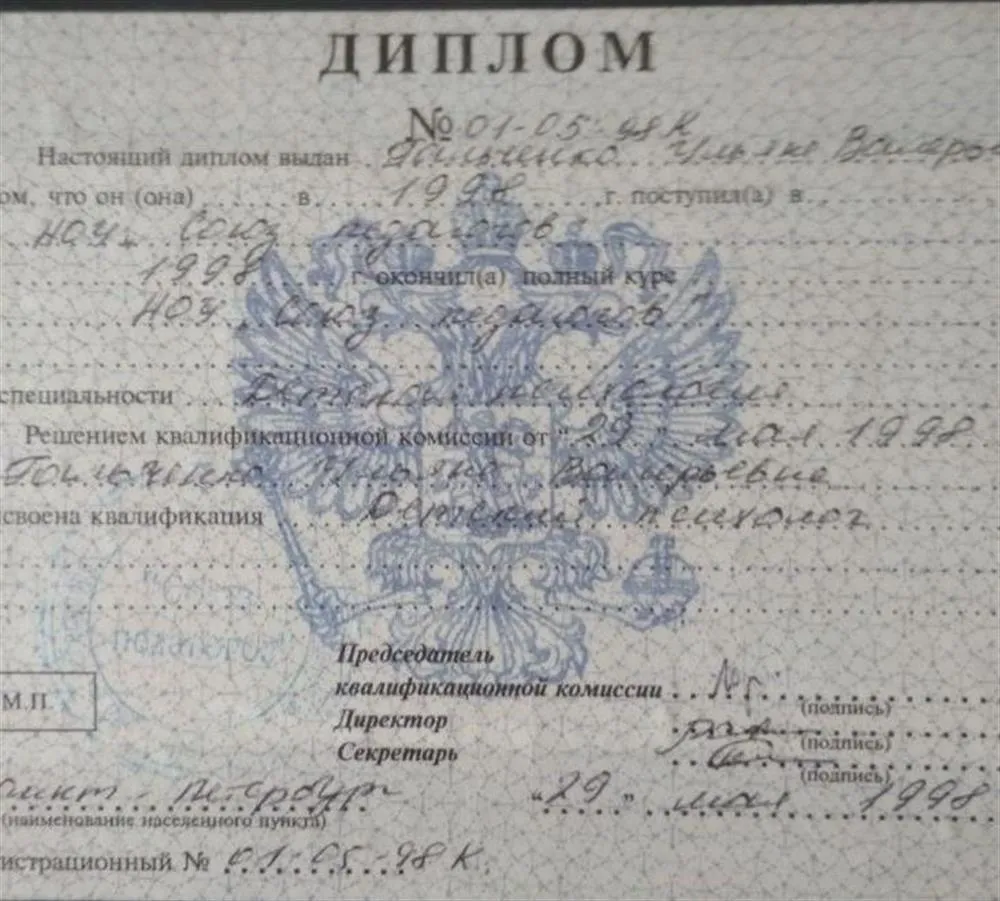 ДИПЛОМ
№ 01-05-98К
Настоящий диплом выдан Ульяне Валеро
ом, что он (она) в 1998 г. поступил(а) в
НОУ Союз педагогов
1998 г. окончил(а) полный курс
НОУ Союз педагогов
специальности Детская психология
Решением квалификационной комиссии от "29" мая 1998
Ульяне Валерьевне
своена квалификация Детский психолог
"СОЮЗ
ПЕДАГОГОВ"
Председатель
квалификационной комиссии
(подпись)
М.П.
Директор
(подпись)
Секретарь
(подпись)
анкт-Петербург "29" мая 1998
(наименование населенного пункта)
истрационный № 01-05-98К